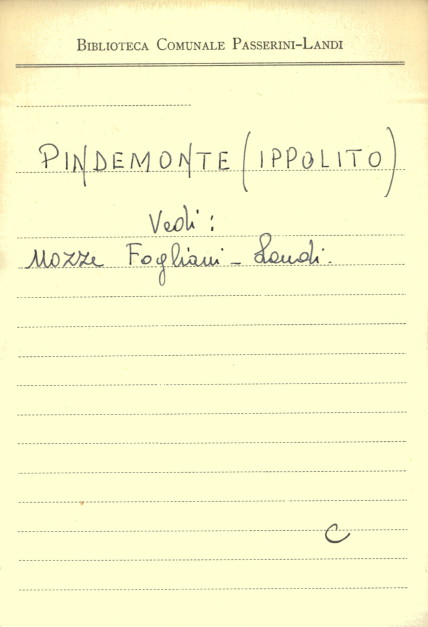 BIBLIOTECA COMUNALE PASSERINI-LANDI
PINDEMONTE (IPPOLITO)
Vedi:
Nozze Fogliani - Landi.
C